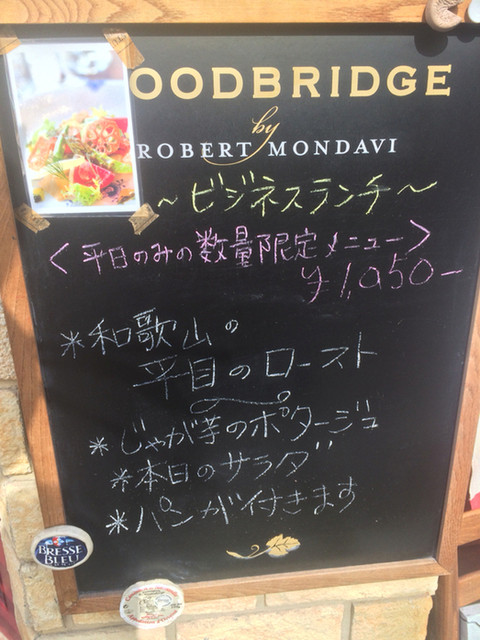 OODBRIDGE
by
ROBERT MONDAVI
～ビジネスランチ～
＜平日のみの数量限定メニュー＞
¥1,050-
＊和歌山の
平目のロースト
＊じゃが芋のポタージュ
＊本日のサラダ
＊パンが付きます
BRESSE
BLEU